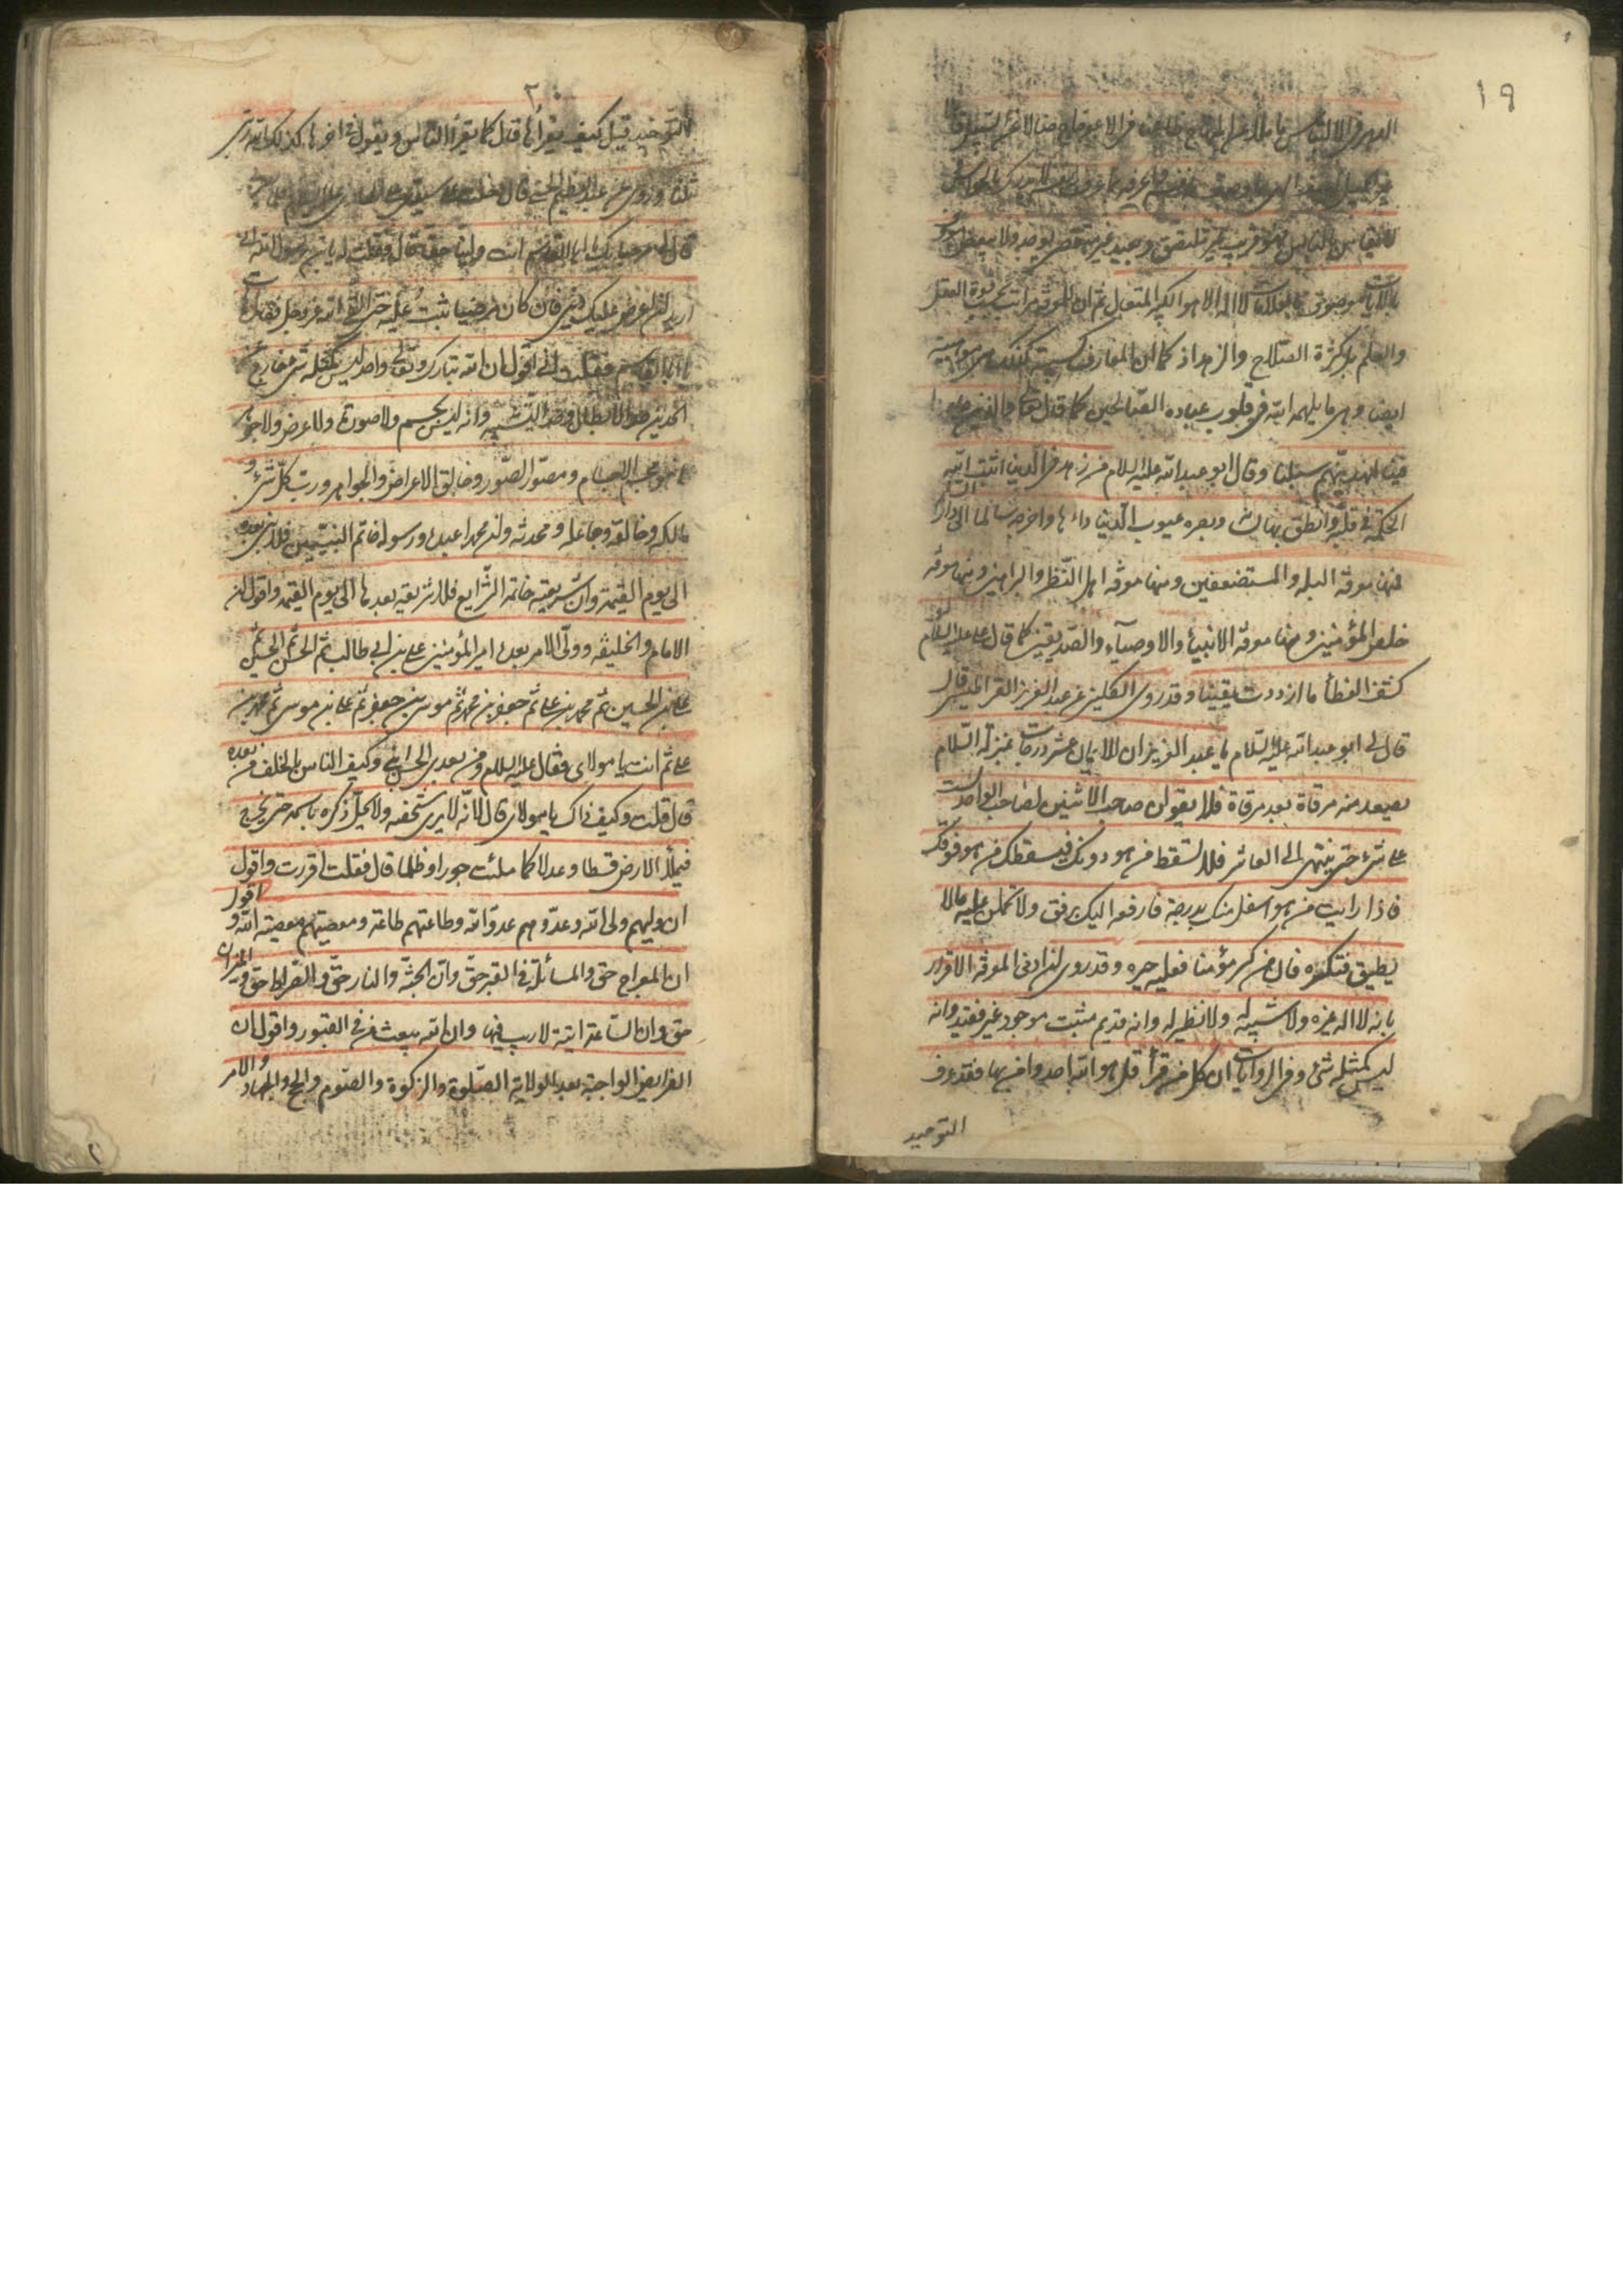 ١٩
لا اله الا هو الكبير المتعال ثم ان للمعرفة مراتب بحسب قوة العقل
والعلم بل كثرة الصلاح والزهد اذ كما ان المعارف كسبية كذلك هى موهبية
ايضا وهى ما يلهمه الله فى قلوب عباده الصالحين كما قال تعالى والذين جاهدوا
فينا لنهدينهم سبلنا وقال ابو عبد الله عليه السلام من زهد فى الدنيا اثبت الله
الحكمة فى قلبه وانطق بها لسانه وبصره عيوب الدنيا داءها واخرجه سالما الى دار
فمنها معرفة البله والمستضعفين ومنها معرفة اهل النظر والبراهين ومنها معرفة
خلص المؤمنين ومنها معرفة الانبياء والاوصياء والصديقين كما قال على عليه السلام لو
كشف الغطأ ما ازددت يقينا وقد روى الكلينى عن عبد العزيز القراطيسى قال
قال لى ابو عبد الله عليه السلام يا عبد العزيز ان الايمان عشر درجات بمنزلة السلام
يصعد منه مرقاة بعد مرقاة فلا يقولن صاحب الاثنين لصاحب الواحد لست
على شئ حتى ينتهى الى العاشر فلا تسقط من هو دونك فيسقطك من هو فوقك
فاذا رايت من هو اسفل منك بدرجة فارفعه اليك برفق ولا تحملن عليه مالا
يطيق فتكسره فان من كسر مؤمنا فعليه جبره وقد روى ان ادنى المعرفة الاقرار
بانه لا اله غيره ولا شبيه له ولا نظير له وانه قديم مثبت موجود غير فقيد وانه
ليس كمثله شئ وفى الروايات ان كل من قرأ قل هو الله احد وامن بها فقد عرف
التوحيد
٢٠
التوحيد قيل كيف يقرأها قال كما يقرأ الناس ويقول فى اخرها كذلك الله ربى
ثلثا وروى عن عبد العظيم الحسنى قال دخلت على سيدى على
قال لى مرحبا بك يا ابا القاسم انت ولينا حقا قال فقلت له يابن رسول الله انى
اريد ان اعرض عليك دينى فان كان مرضيا ثبت عليه حتى القى الله عز وجل فقال هات
يا ابا القاسم فقلت انى اقول ان الله تبارك وتعالى واحد ليس كمثله شئ خارج عن
الحدين حد الابطال وحد التشبيه وانه ليس بجسم ولا صورة ولا عرض ولا جوهر
بل هو مجسم الاجسام ومصور الصور وخالق الاعراض والجواهر ورب كل شئ و
مالكه وخالقه وجاعله ومحدثه وان محمدا عبده ورسوله خاتم النبيين فلا نبى بعده
الى يوم القيمة وان شريعته خاتمة الشرايع فلا شريعة بعدها الى يوم القيمة واقول ان
الامام والخليفه وولى الامر بعده امير المؤمنين على بن ابى طالب ثم الحسن ثم الحسين ثم
على بن الحسين ثم محمد بن على ثم جعفر بن محمد ثم موسى بن جعفر ثم على بن موسى ثم محمد بن
على ثم انت يا مولاى فقال عليه السلام ومن بعدى الحسن ابنى وكيف الناس بالخلف من بعده
قال قلت وكيف ذاك يا مولاى قال لانه لا يرى شخصه ولا يحل ذكره باسمه حتى يخرج
فيملأ الارض قسطا وعدلا كما ملئت جورا وظلما قال فقلت اقررت واقول
ان وليهم ولى الله وعدوهم عدو الله وطاعتهم طاعة ومعصيتهم معصية الله و اقول
ان المعراج حق والمسائلة فى القبر حق وان الجنة والنار حق والصراط حق والميزان
حق وان الساعة اتية لا ريب فيها وان الله يبعث من فى القبور واقول ان
الفرايض الواجبة بعد الولاية الصلوة والزكوة والصوم والحج والجهاد والامر